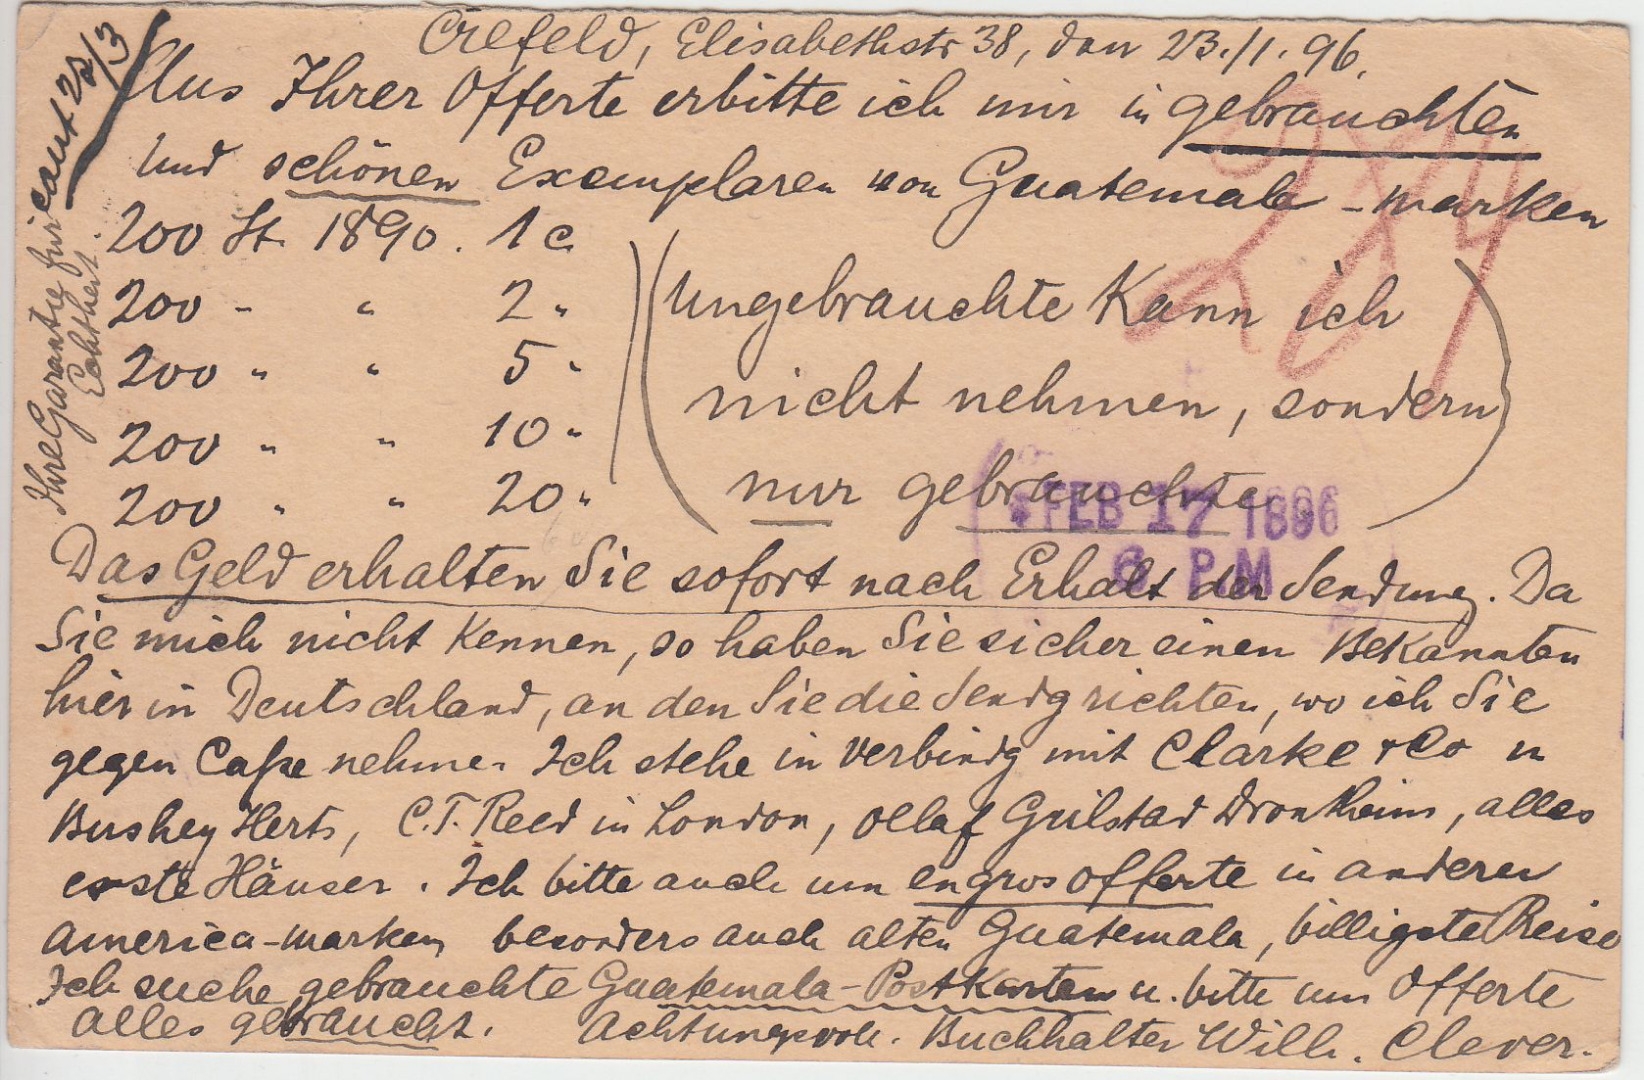 Crefeld, Elisabethstr 38, den 23./1. 96.
Aus Ihrer Offerte erbitte ich mir in gebrauchten
und schönen Exemplaren von Guatemala - marken
200 St. 1890. 1 c
200 " " 2 "
200 " " 5 "
200 " " 10 "
200 " " 20 "
(Ungebrauchte Kann ich
nicht nehmen, sondern
nur gebrauchte.)
Das Geld erhalten Sie sofort nach Erhalt der Sendung. Da
Sie mich nicht Kennen, so haben Sie sicher einen BeKannten
hier in Deutschland, an den Sie die Sendg richten, wo ich Sie
gegen Casse nehme. Ich stehe in Verbindg mit Clarke & Co in
Bushey Herts, C.T. Reed in London, Ollaf Grilstad Drontheim, alles
erste Häuser. Ich bitte auch um engros offerte in anderen
America-marken besonders auch alten Guatemala, billigste Preise
Ich suche gebrauchte Guatemala-PostKarten u. bitte um Offerte
alles gebraucht. Achtungsvoll. Buchhalter Willh. Clever.
Ihre Garantie für
Echtheit.
FEB 17 1896
6 P.M